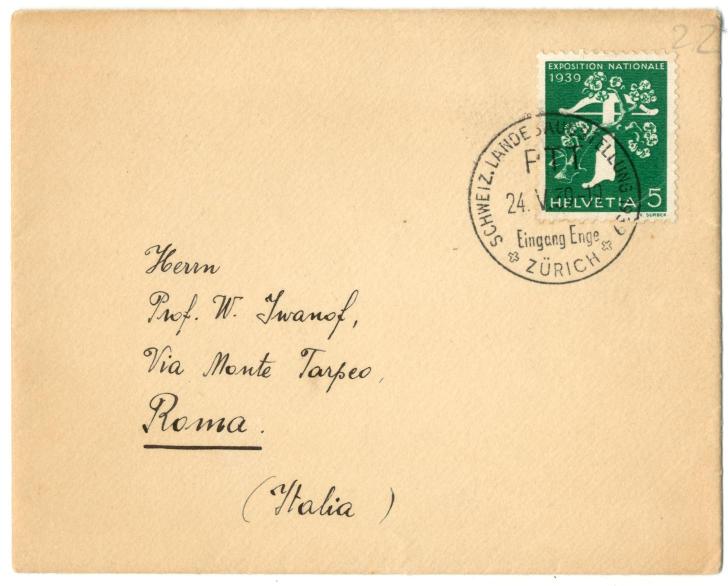 22
EXPOSITION NATIONALE
1939
HELVETIA 5
SCHWEIZ. LANDESAUSSTELLUNG 1939
PTT
24. V. 39. 10
Eingang Enge
ZÜRICH
Herrn
Prof. W. Iwanof,
Via Monte Tarpeo,
Roma.
(Italia)